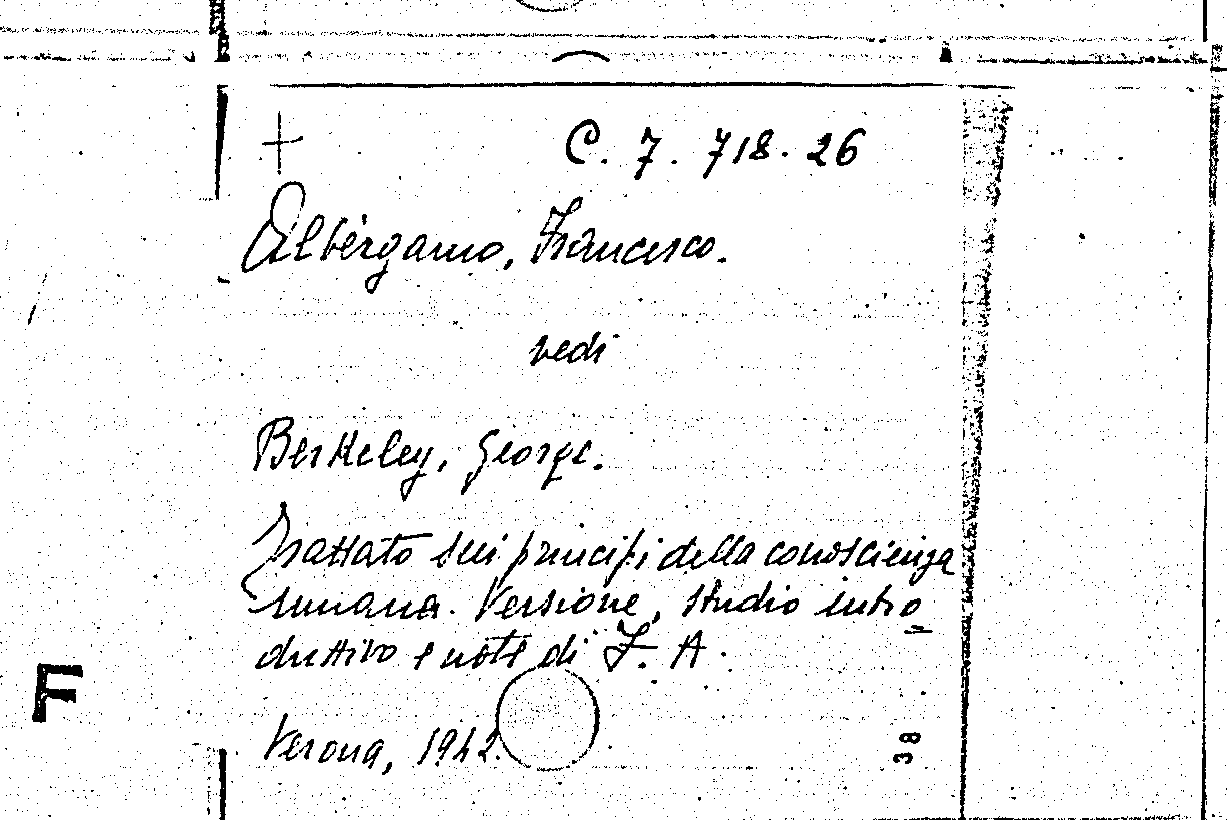 + C. 7. 718. 26
Albèrgamo, Francesco.
vedi
Berkeley, George.
Trattato sui principi della conoscienza
umana. Versione, studio intro
duttivo e note di F. A.
Verona, 1942.
38
F